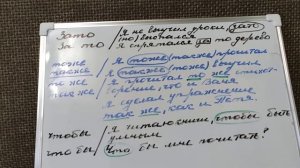 Зато / Я не выучил уроки, зато
(но) выспался
За то / Я спрятался за то дерево
тоже / Я тоже (также) прочитал
также / Я также (тоже) выучил
то же / Я прочитал то же стихот-
так же / ворение, что и Ваня
Я сделал упражнение
так же, как и Петя.
чтобы / Я читаю книги, чтобы быть
умным
что бы / Что бы мне почитать?